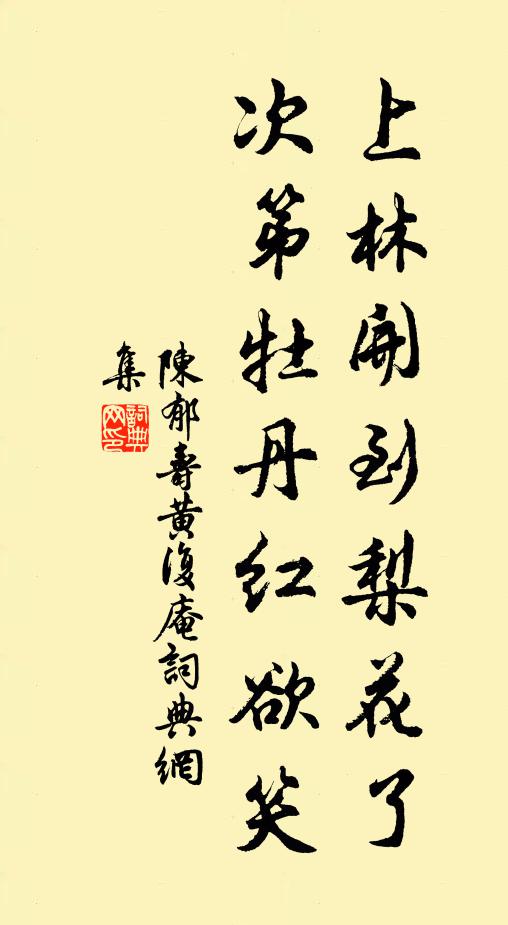 上林開到梨花了
次第牡丹紅欲笑
陳郁壽黃復庵詞典網
集
詞典網印